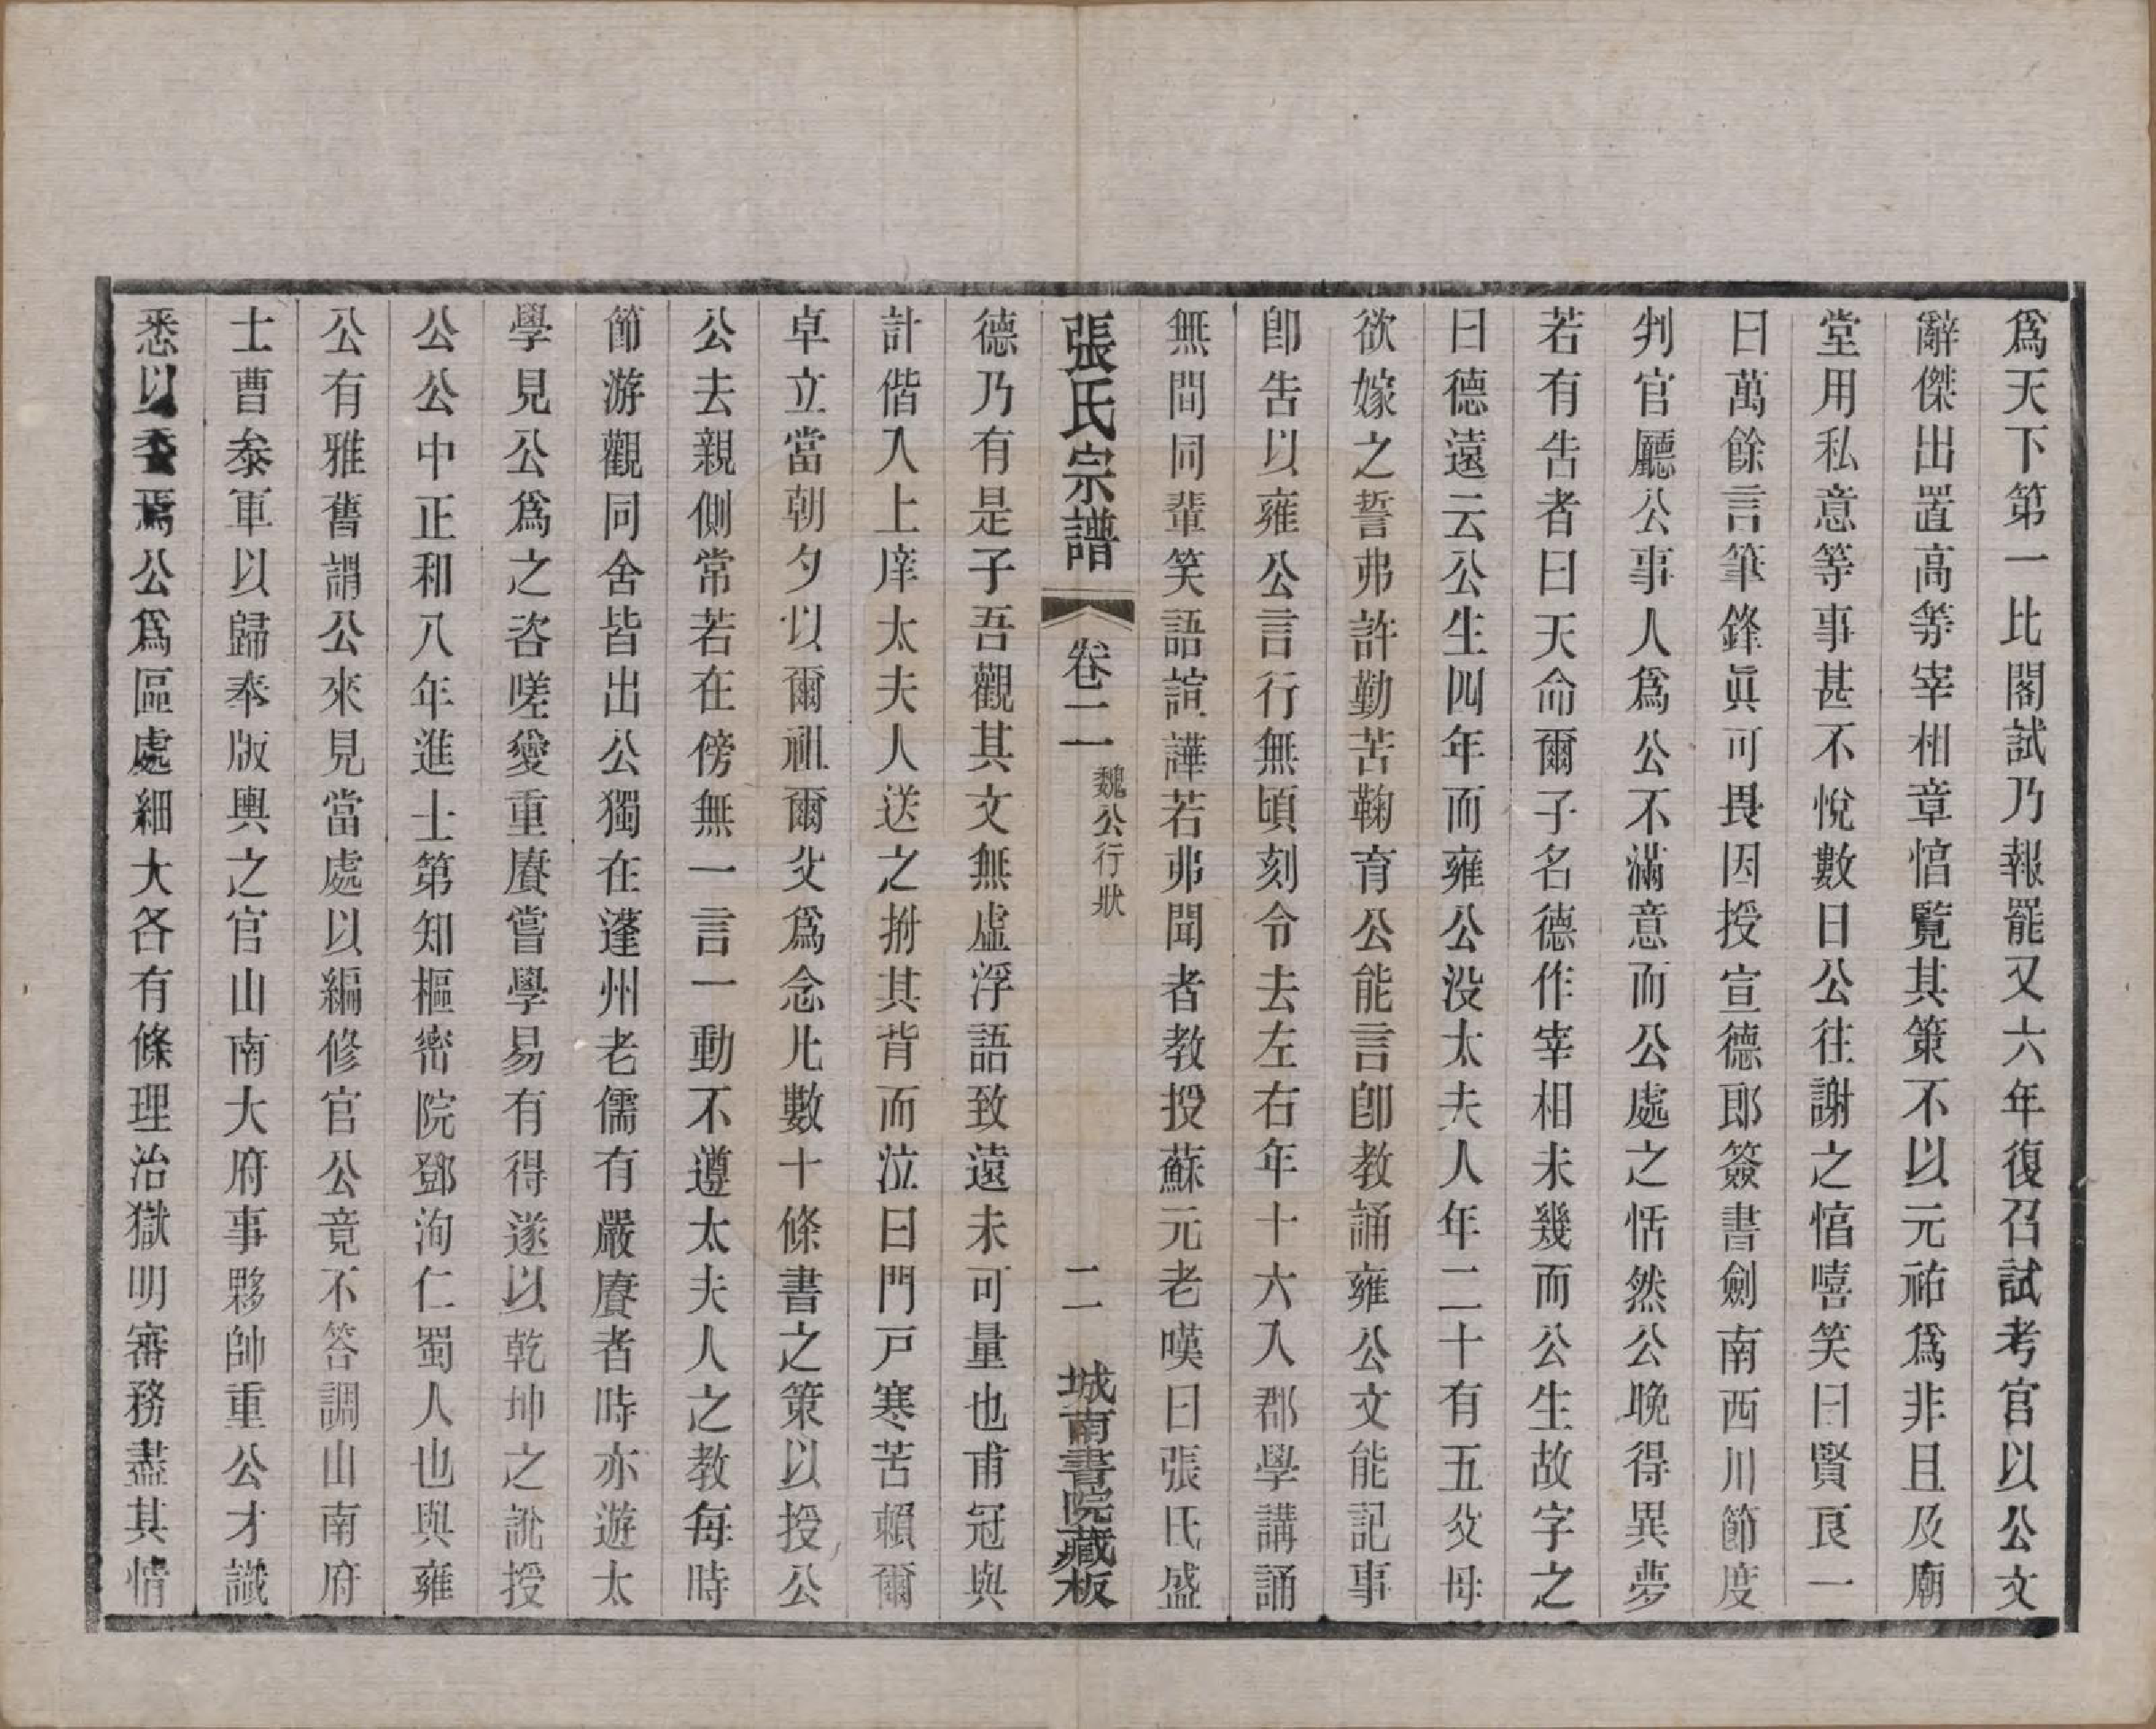 爲天下第一比閣試乃報罷又六年復召試考官以公文
辭傑出置高等宰相章惇覽其策不以元祐爲非且及廟
堂用私意等事甚不悅數日公往謝之惇嘻笑曰賢良一
日萬餘言筆鋒眞可畏因授宣德郎簽書劍南西川節度
判官廳公事人爲公不滿意而公處之恬然公晚得異夢
若有吿者曰天命爾子名德作宰相未幾而公生故字之
曰德遠云公生四年而雍公没太夫人年二十有五父母
欲嫁之誓弗許勤苦鞠育公能言卽教誦雍公文能記事
卽吿以雍公言行無頃刻令去左右年十六入郡學講誦
無間同輩笑語諠譁若弗聞者教授蘇元老嘆曰張氏盛
張氏宗譜 卷二 魏公行狀 二 城南書院藏板
德乃有是子吾觀其文無虛浮語致遠未可量也甫冠與
計偕入上庠太夫人送之拊其背而泣曰門戸寒苦賴爾
卓立當朝夕以爾祖爾父爲念凡數十條書之策以授公
公去親側常若在傍無一言一動不遵太夫人之教每時
節游觀同舍皆出公獨在蓬州老儒有嚴賡者時亦遊太
學見公爲之咨嗟愛重賡嘗學易有得遂以乾坤之說授
公公中正和八年進士第知樞密院鄧洵仁蜀人也與雍
公有雅舊謂公來見當處以編修官公竟不答調山南府
士曹叅軍以歸奉版輿之官山南大府事夥帥重公才識
悉以委焉公爲區處細大各有條理治獄明審務盡其情